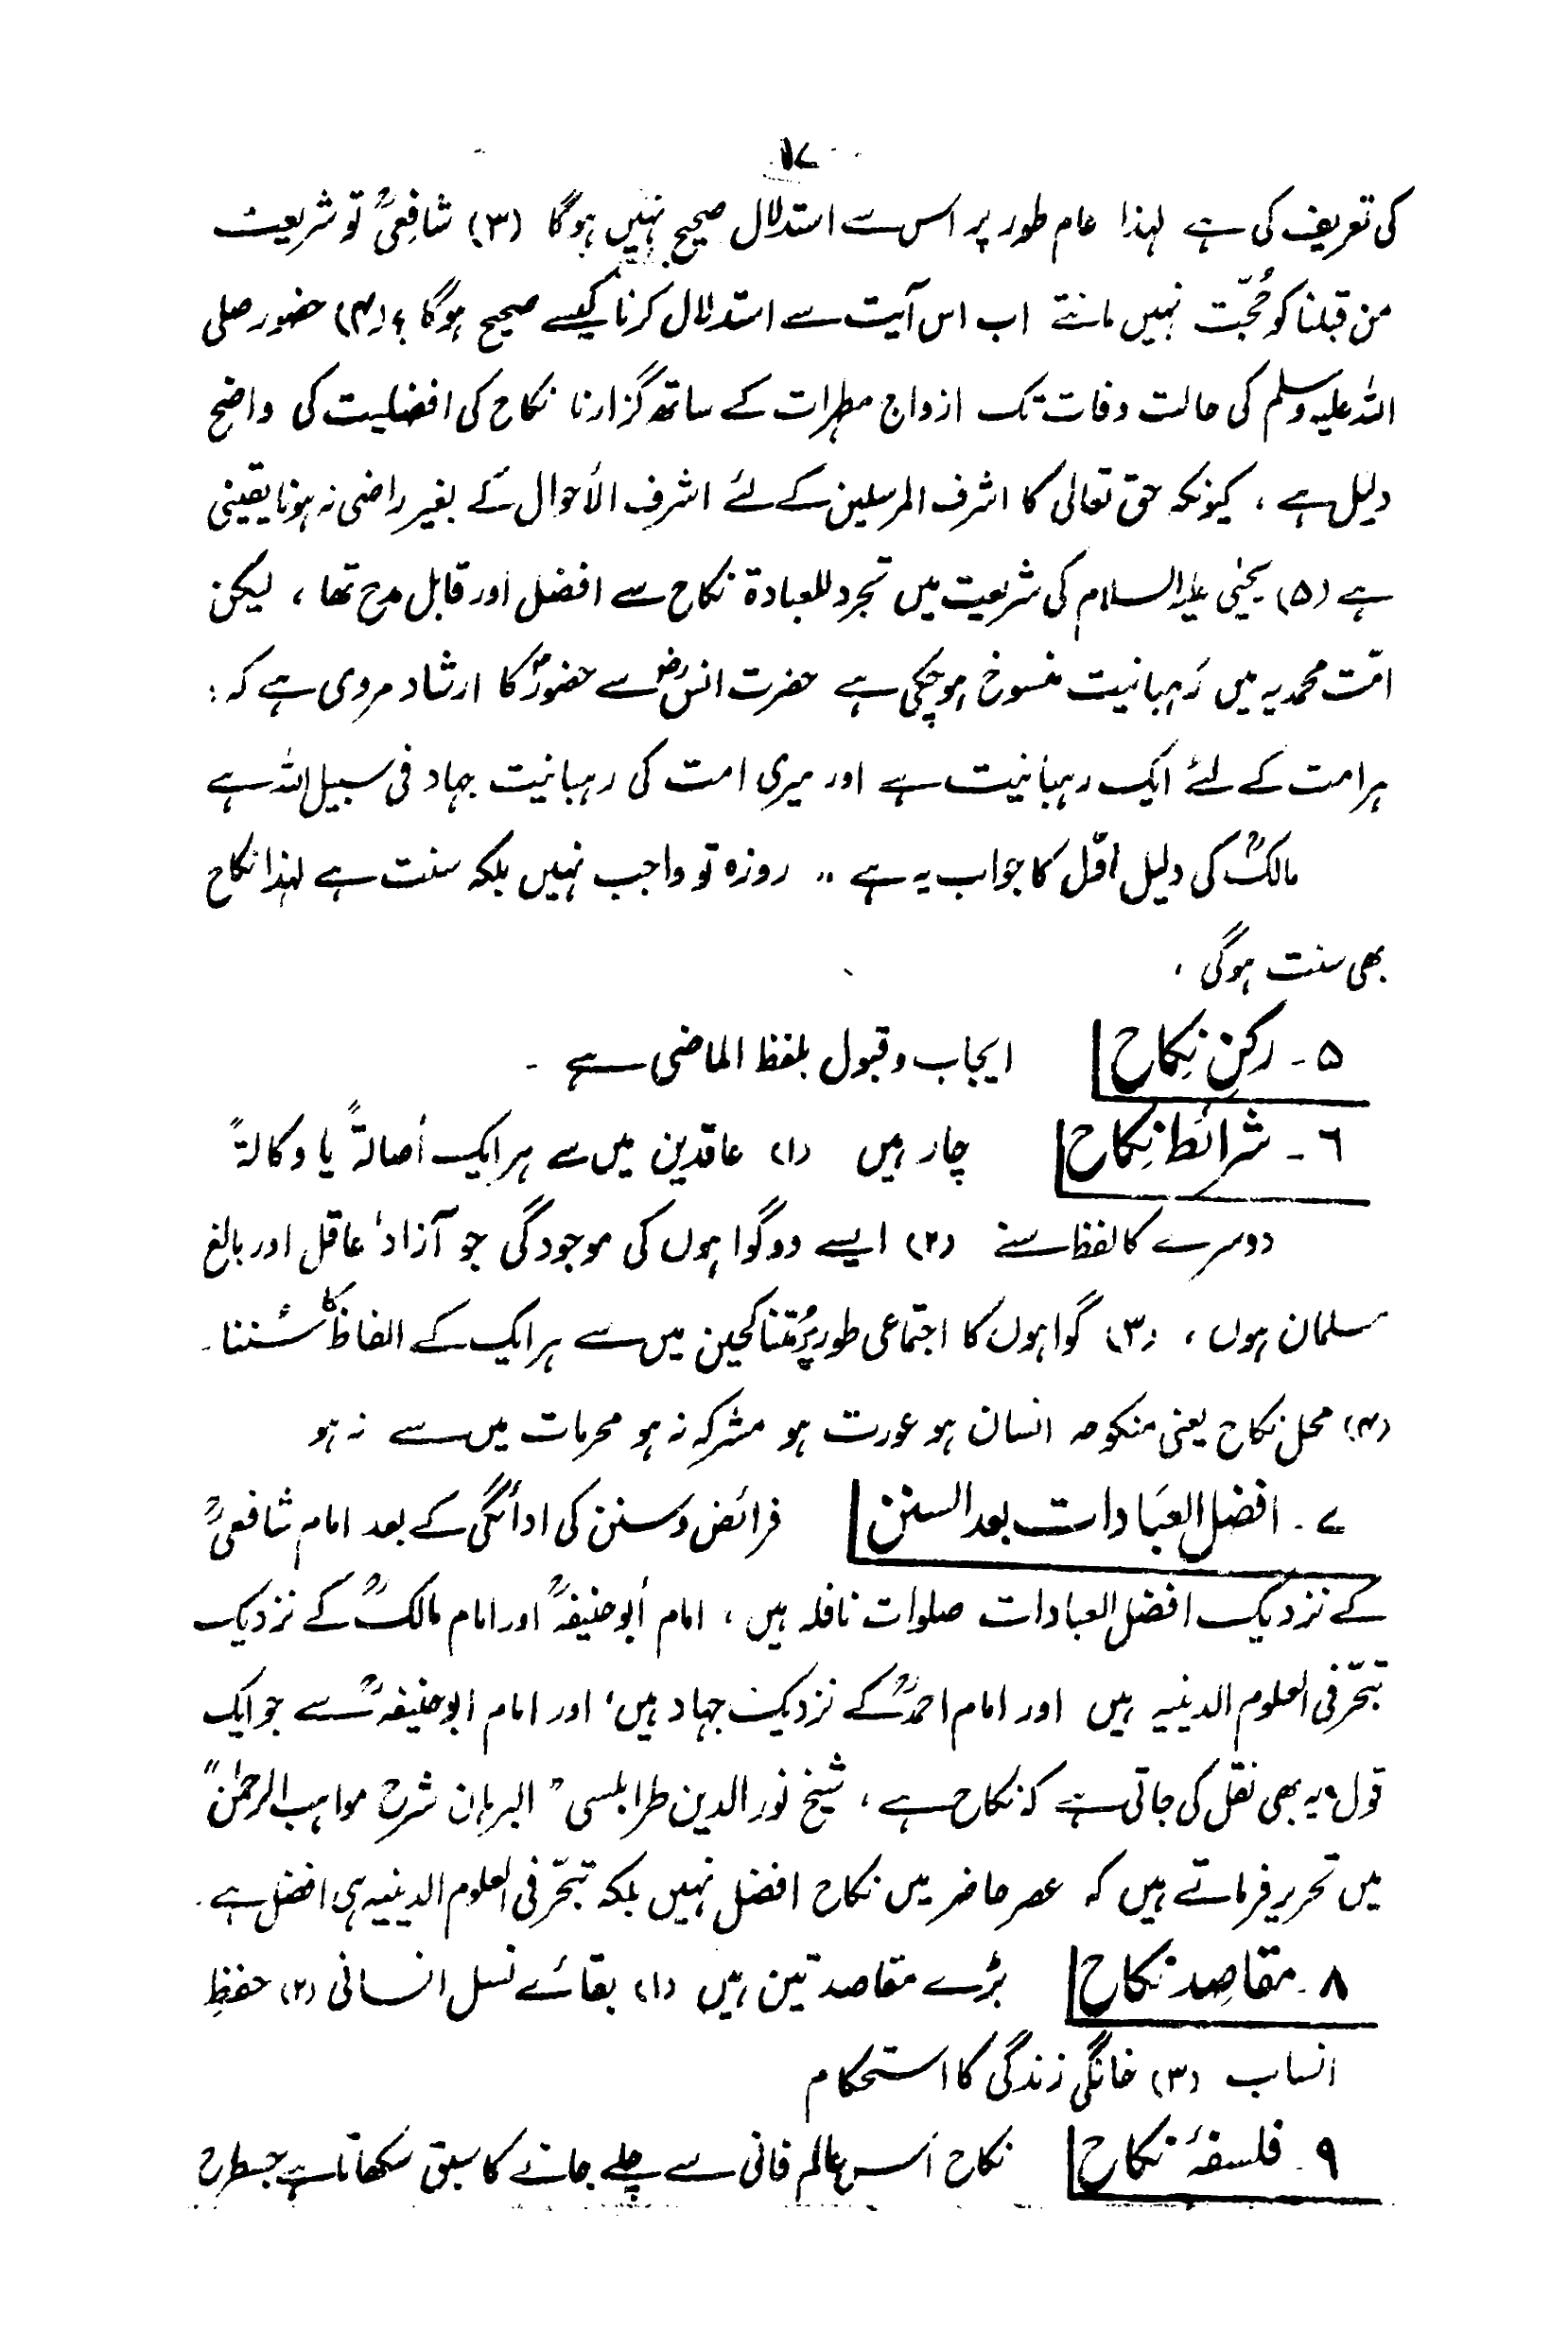 ۱۷
کی تعریف کی ہے لہذا عام طور پر اس سے استدلال صحیح نہیں ہوگا (۳) شافعیؒ تو شریعت
من قبلنا کو حُجّت نہیں مانتے اب اس آیت سے استدلال کرنا کیسے صحیح ہوگا ؟ (۴) حضور صلی
اللہ علیہ وسلم کی حالت وفات تک ازواج مطہرات کے ساتھ گزارنا نکاح کی افضلیت کی واضح
دلیل ہے ، کیونکہ حق تعالی کا اشرف المرسلین کے لئے اشرف الأحوال کے بغیر راضی نہ ہونا یقینی
ہے (۵) یحیٰی علیہ السلام کی شریعت میں تجرد للعبادة نکاح سے افضل اور قابل مدح تھا ، لیکن
امّت محمدیہ میں رَہبانیت منسوخ ہوچکی ہے حضرت انسؓ سے حضورؐ کا ارشاد مروی ہے کہ :
ہر امت کے لئے ایک رہبانیت ہے اور میری امت کی رہبانیت جہاد فی سبیل اللہ ہے
مالکؒ کی دلیل اوّل کا جواب یہ ہے ،، روزہ تو واجب نہیں بلکہ سنت ہے لہذا نکاح
بھی سنت ہوگی ،
۵ ـ رکنِ نِکاح ایجاب و قبول بلفظ الماضی ہے ـ
٦ ـ شرائط نِکاح چار ہیں (۱) عاقدین میں سے ہر ایک أصالةً یا وکالةً
دوسرے کا لفظ سنے (۲) ایسے دو گواہوں کی موجودگی جو آزاد، عاقل اور بالغ
مسلمان ہوں ، (۳) گواہوں کا اجتماعی طور پر مُتناکحین میں سے ہر ایک کے الفاظ کا سُننا ـ
(۴) محل نکاح یعنی منکوحہ انسان ہو عورت ہو مشرکہ نہ ہو محرمات میں سے نہ ہو
۷ ـ افضل العبَادات بعد السنن فرائض و سنن کی ادائگی کے بعد امام شافعیؒ
کے نزدیک افضل العبادات صلوات نافلہ ہیں ، امام أبو حنیفہؒ اور امام مالکؒ کے نزدیک
تبحّر فی العلوم الدینیہ ہیں اور امام احمدؒ کے نزدیک جہاد ہیں، اور امام ابو حنیفہؒ سے جو ایک
قول یہ بھی نقل کی جاتی ہے کہ نکاح ہے ، شیخ نور الدین طرابلسی " البرہان شرح مواہب الرحمٰن "
میں تحریر فرماتے ہیں کہ عصر حاضر میں نکاح افضل نہیں بلکہ تبحّر فی العلوم الدینیہ ہی افضل ہے ـ
۸ ـ مقاصِد نکاح بڑے مقاصد تین ہیں (۱) بقائے نسل انسانی (۲) حفظِ
انساب (۳) خانگی زندگی کا استحکام
۹ ـ فلسفۂ نکاح نکاح اس عالم فانی سے چلے جانے کا سبق سکھاتا ہے جسطرح